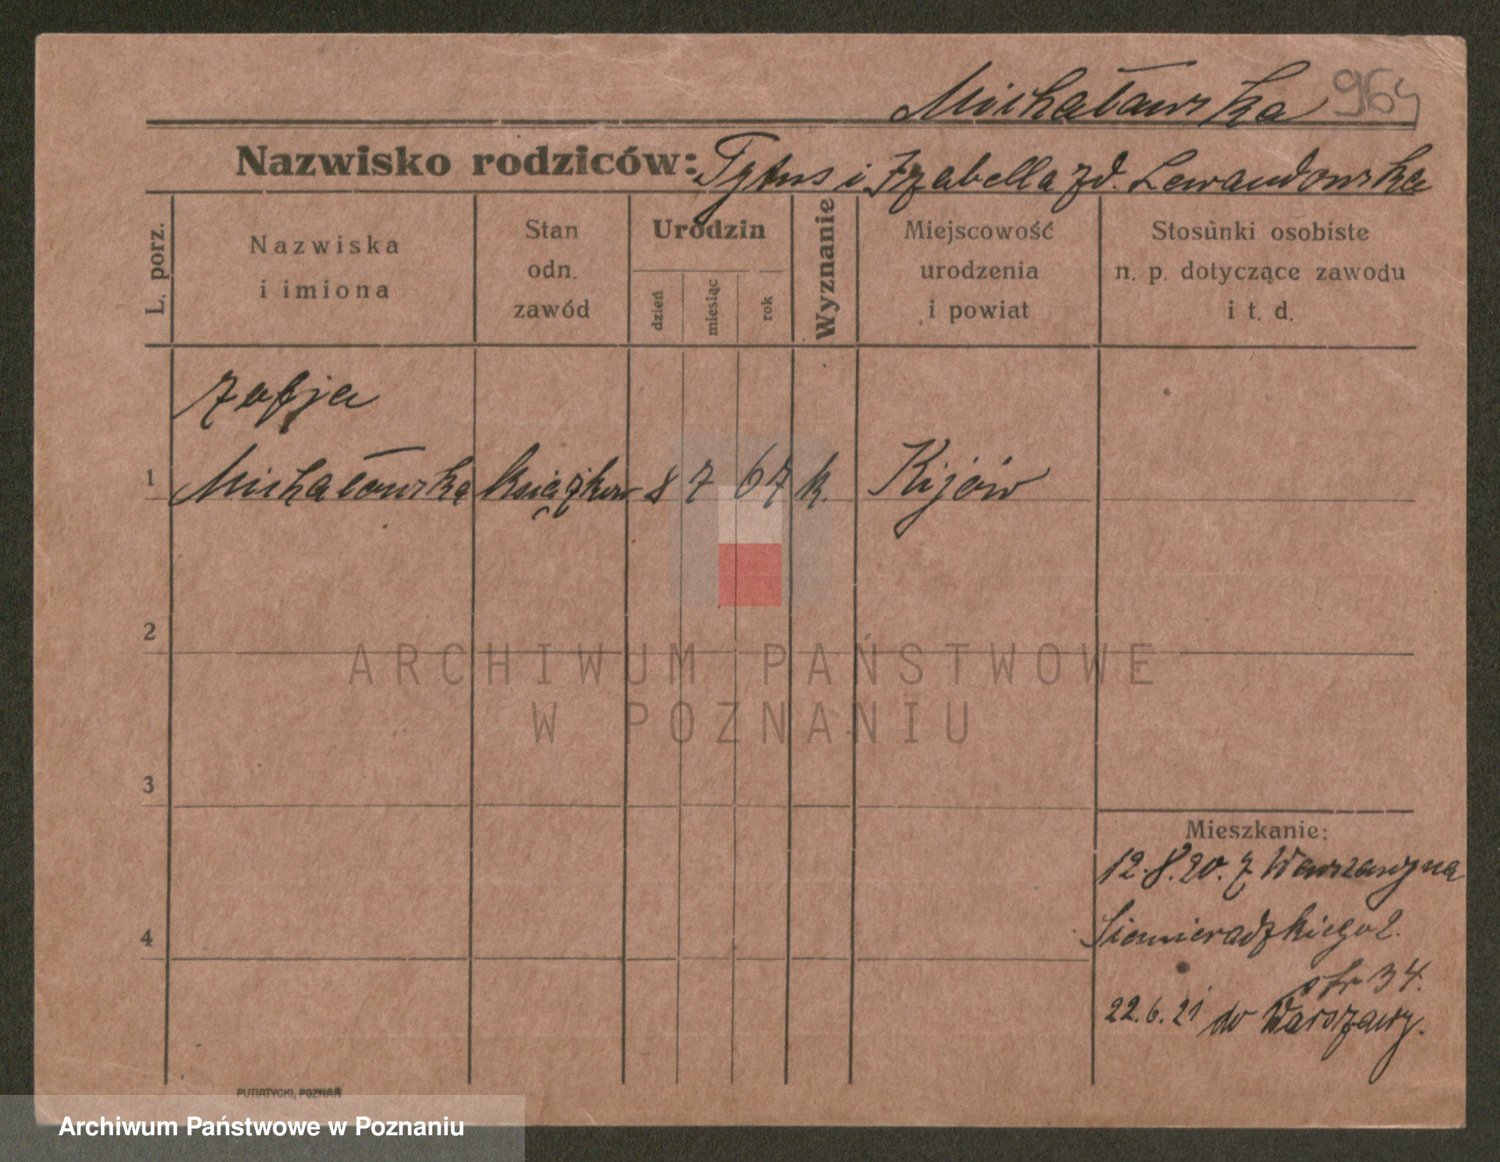 Michałowska 964
Nazwisko rodziców: Tytus i Izabella zd. Lewandowska
L. porz.
Nazwiska
i imiona
Stan
odn.
zawód
Urodzin
dzień
miesiąc
rok
Wyznanie
Miejscowość
urodzenia
i powiat
Stosunki osobiste
n. p. dotyczące zawodu
i t. d.
Zofja
1 Michałowska 8 7 67 k. Kijów
2
ARCHIWUM PAŃSTWOWE
W POZNANIU
3
Mieszkanie:
12.8.20. z Warszawy na
4 Siemieradzkiego 2.
str 34.
22.6.21 do Warszawy.
PUTIATYCKI, POZNAŃ
Archiwum Państwowe w Poznaniu